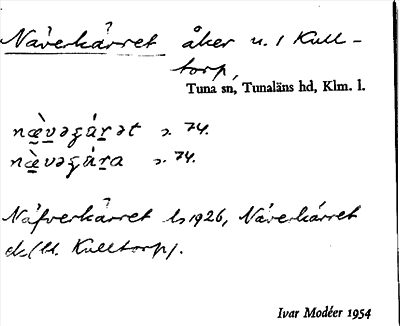 Näverkärret åker u. 1 Kull-
torp,
Tuna sn, Tunaläns hd, Klm. l.
næ̀vəgä́rət s. 74.
næ̀vəgä́ra s. 74.
Näfverkärret ls 1926, Näverkärret
ek (bl. Kulltorp).
Ivar Modéer 1954